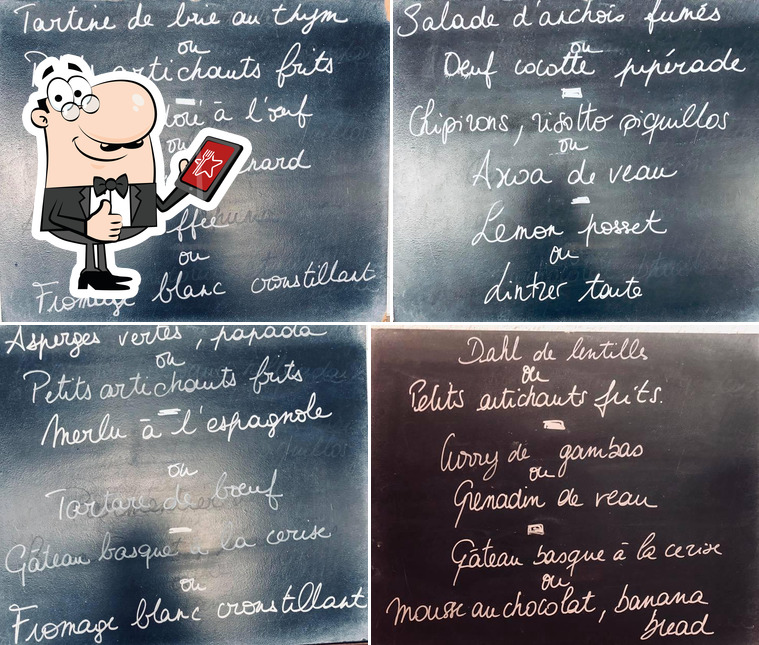 Tartine de brie au thym
ou
artichauts frits
à l'œuf
ou
ffée
ou
Fromage blanc croustillant
Salade d'anchois fumés
ou
Oeuf cocotte pipérade
Chipirons, risotto piquillos
ou
Axoa de veau
Lemon posset
ou
Lintzer taute
Asperges vertes, papada
ou
Petits artichauts frits
Merlu à l'espagnole
ou
Tartare de bœuf
Gâteau basque à la cerise
ou
Fromage blanc croustillant
Dahl de lentilles
ou
Petits artichauts frits.
Curry de gambas
ou
Grenadin de veau
Gâteau basque à la cerise
ou
Mousse au chocolat, banana
bread